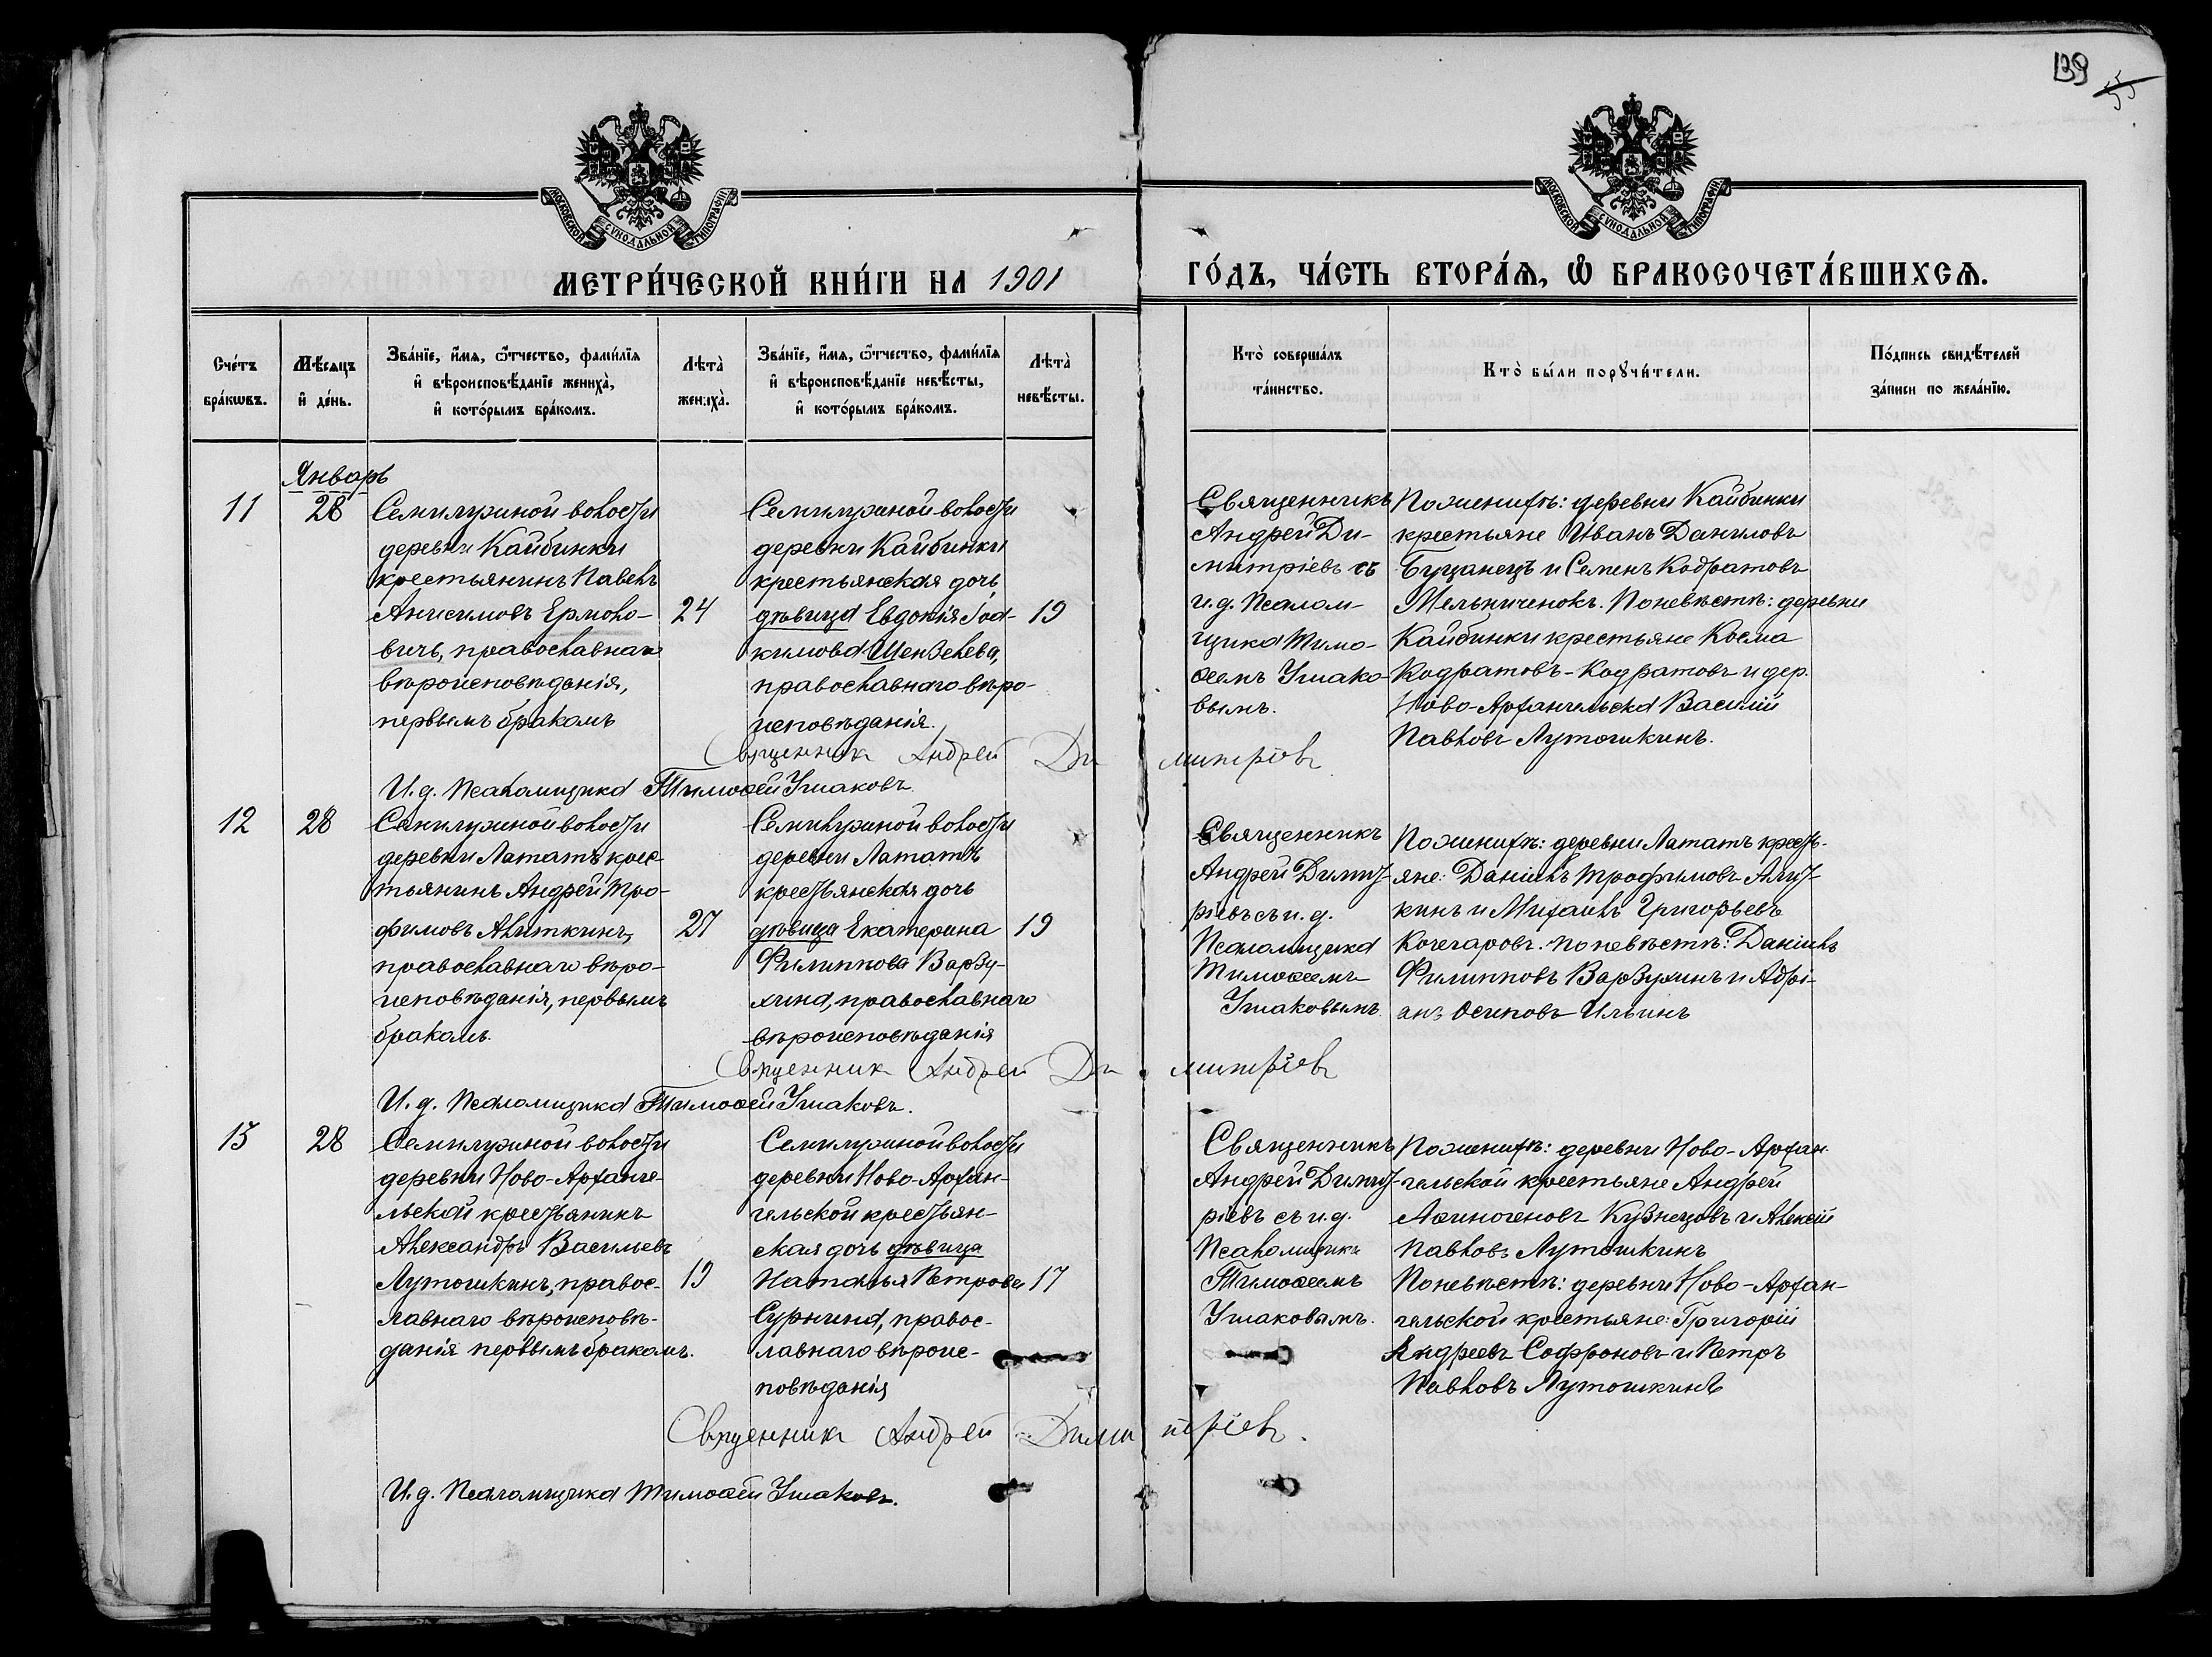 139
55
МОСКОВСКОЙ СУНОДАЛЬНОЙ ТИПОГРАФІИ
МОСКОВСКОЙ СУНОДАЛЬНОЙ ТИПОГРАФІИ
МЕТРИ́ЧЕСКОЙ КНИ́ГИ НА 1901 ГО́ДЪ, ЧА́СТЬ ВТОРА́Я, Ѽ БРАКОСОЧЕТА́ВШИХСЯ.
Сче́тъ бра́кѡвъ.
Мѣ́сяцъ и де́нь.
Зва́нїе, и́мя, ѻ҆́тчество, фами́лїя и вѣроисповѣ́данїе жениха̀, и кото́рымъ бра́комъ.
Лѣта̀ жениха̀.
Зва́нїе, и́мя, ѻ҆́тчество, фами́лїя и вѣроисповѣ́данїе невѣ́сты, и кото́рымъ бра́комъ.
Лѣта̀ невѣ́сты.
Кто̀ соверша́лъ та́инство.
Кто̀ бы́ли порꙋчи́тели.
По́дпись свидѣ́телей за́писи по жела́нїю.
Январь
11
28
Семилужной волости
деревни Кайбинки
крестьянинъ Павелъ
Анисимовъ Ермоло-
вичъ, православнаго
вѣроисповѣданія,
первымъ бракомъ
24
Семилужной волости
деревни Кайбинки
крестьянская дочь
дѣвица Евдокія Іоа-
кимова Шензелева,
православнаго вѣро-
исповѣданія.
19
Священникъ
Андрей Ди-
митріевъ съ
и.д. Псалом-
щика Тимо-
ѳеемъ Ушако-
вымъ.
По женихѣ: деревни Кайбинки
крестьяне Иванъ Даниловъ
Буцанецъ и Семенъ Кодратовъ
Мельниченокъ. По невѣстѣ: деревни
Кайбинки крестьяне Косма
Кодратовъ-Кодратовъ и дер.
Ново-Архангельска Василій
Павловъ Лутошкинъ.
Священник Андрей Димитріевъ
И.д. Псаломщика Тимоѳей Ушаковъ.
12
28
Семилужной волости
деревни Лататъ крес-
тьянинъ Андрей Тро-
фимовъ Алиткинъ,
православнаго вѣро-
исповѣданія, первымъ
бракомъ.
27
Семилужной волости
деревни Лататъ
крестьянская дочь
дѣвица Екатерина
Филиппова Варзу-
хина, православнаго
вѣроисповѣданія
19
Священникъ
Андрей Димит-
ріевъ съ и.д.
Псаломщика
Тимоѳеемъ
Ушаковымъ.
По женихѣ: деревни Лататъ кресть-
яне: Даніилъ Трофимовъ Алит-
кинъ и Михаилъ Григорьевъ
Кочегаровъ. По невѣстѣ: Даніилъ
Филипповъ Варзухинъ и Адрі-
анъ Осиповъ Ильинъ
Священник Андрей Димитріевъ
И.д. Псаломщика Тимоѳей Ушаковъ.
13
28
Семилужной волости
деревни Ново-Арханге-
льской крестьянинъ
Александръ Васильевъ
Лутошкинъ, правос-
лавнаго вѣроисповѣ-
данія первымъ бракомъ.
19
Семилужной волости
деревни Ново-Архан-
гельской крестьян-
ская дочь дѣвица
Наталья Петрова
Сурнина, правос-
лавнаго вѣроис-
повѣданія
17
Священникъ
Андрей Димит-
ріевъ съ и.д.
Псаломщика
Тимоѳеемъ
Ушаковымъ.
По женихѣ: деревни Ново-Архан-
гельской крестьяне Андрей
Аѳиногеновъ Кузнецовъ и Алексій
Павловъ Лутошкинъ
По невѣстѣ: деревни Ново-Архан-
гельской крестьяне: Григорій
Андреевъ Софроновъ и Петръ
Павловъ Лутошкинъ
Священник Андрей Димитріевъ.
И.д. Псаломщика Тимоѳей Ушаковъ.